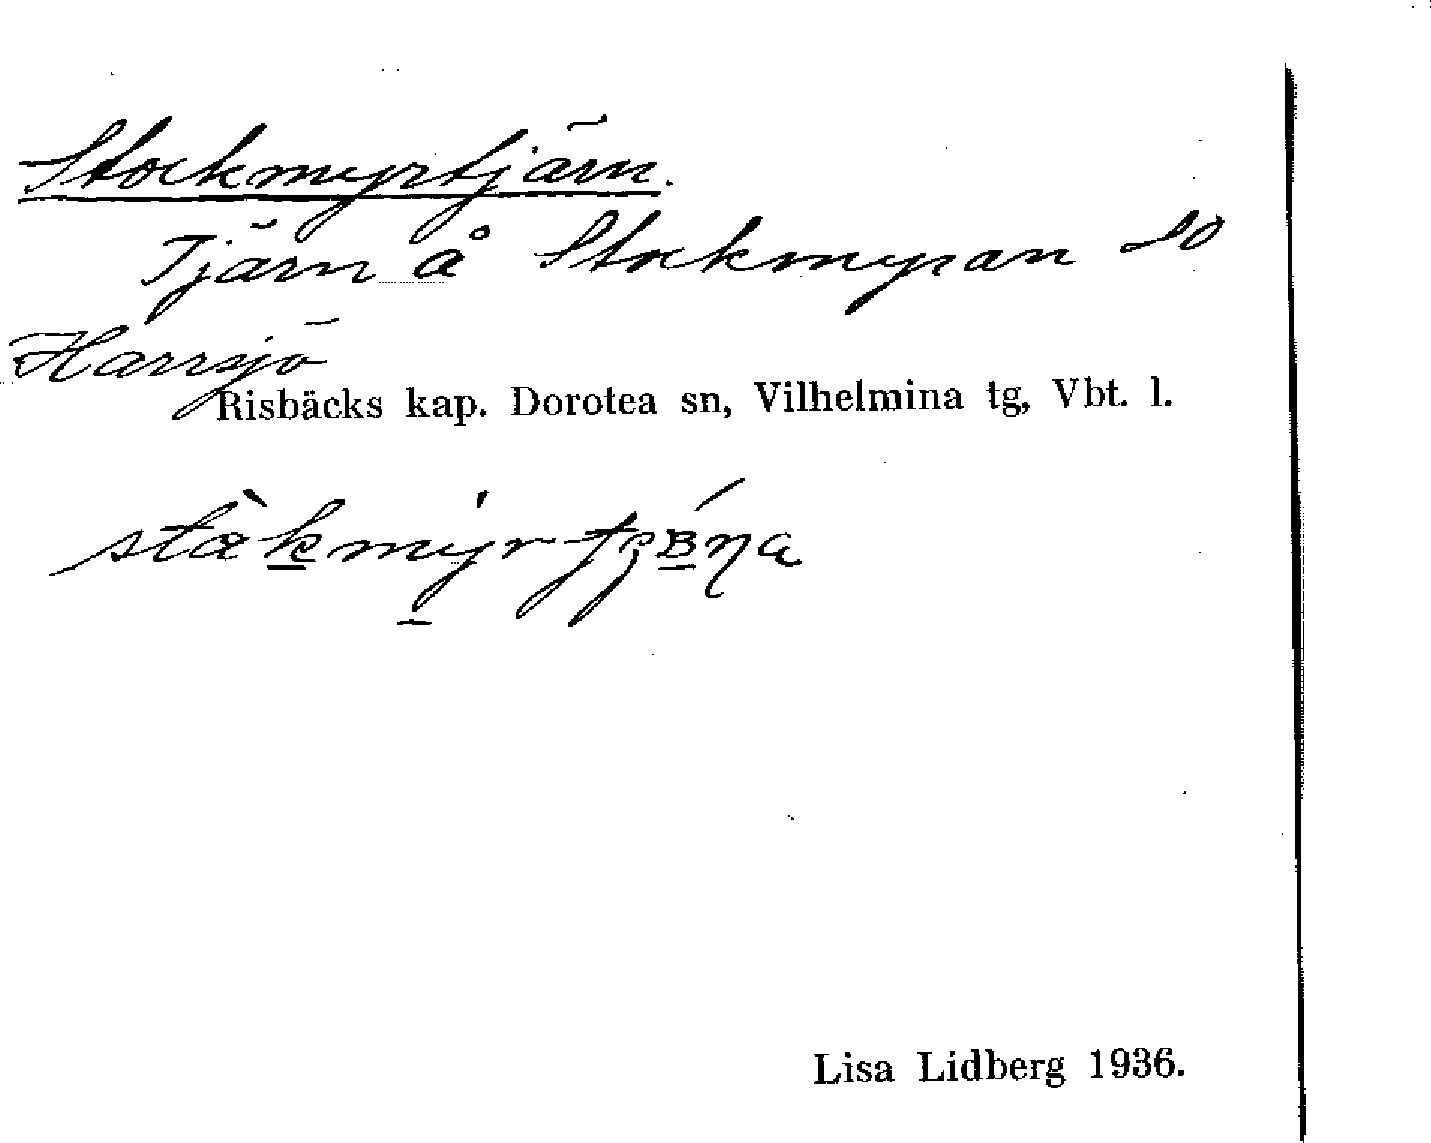 Stockmyrtjärn.
Tjärn å Stockmyran so
Harrsjö
Risbäcks kap. Dorotea sn, Vilhelmina tg, Vbt. l.
Lisa Lidberg 1936.